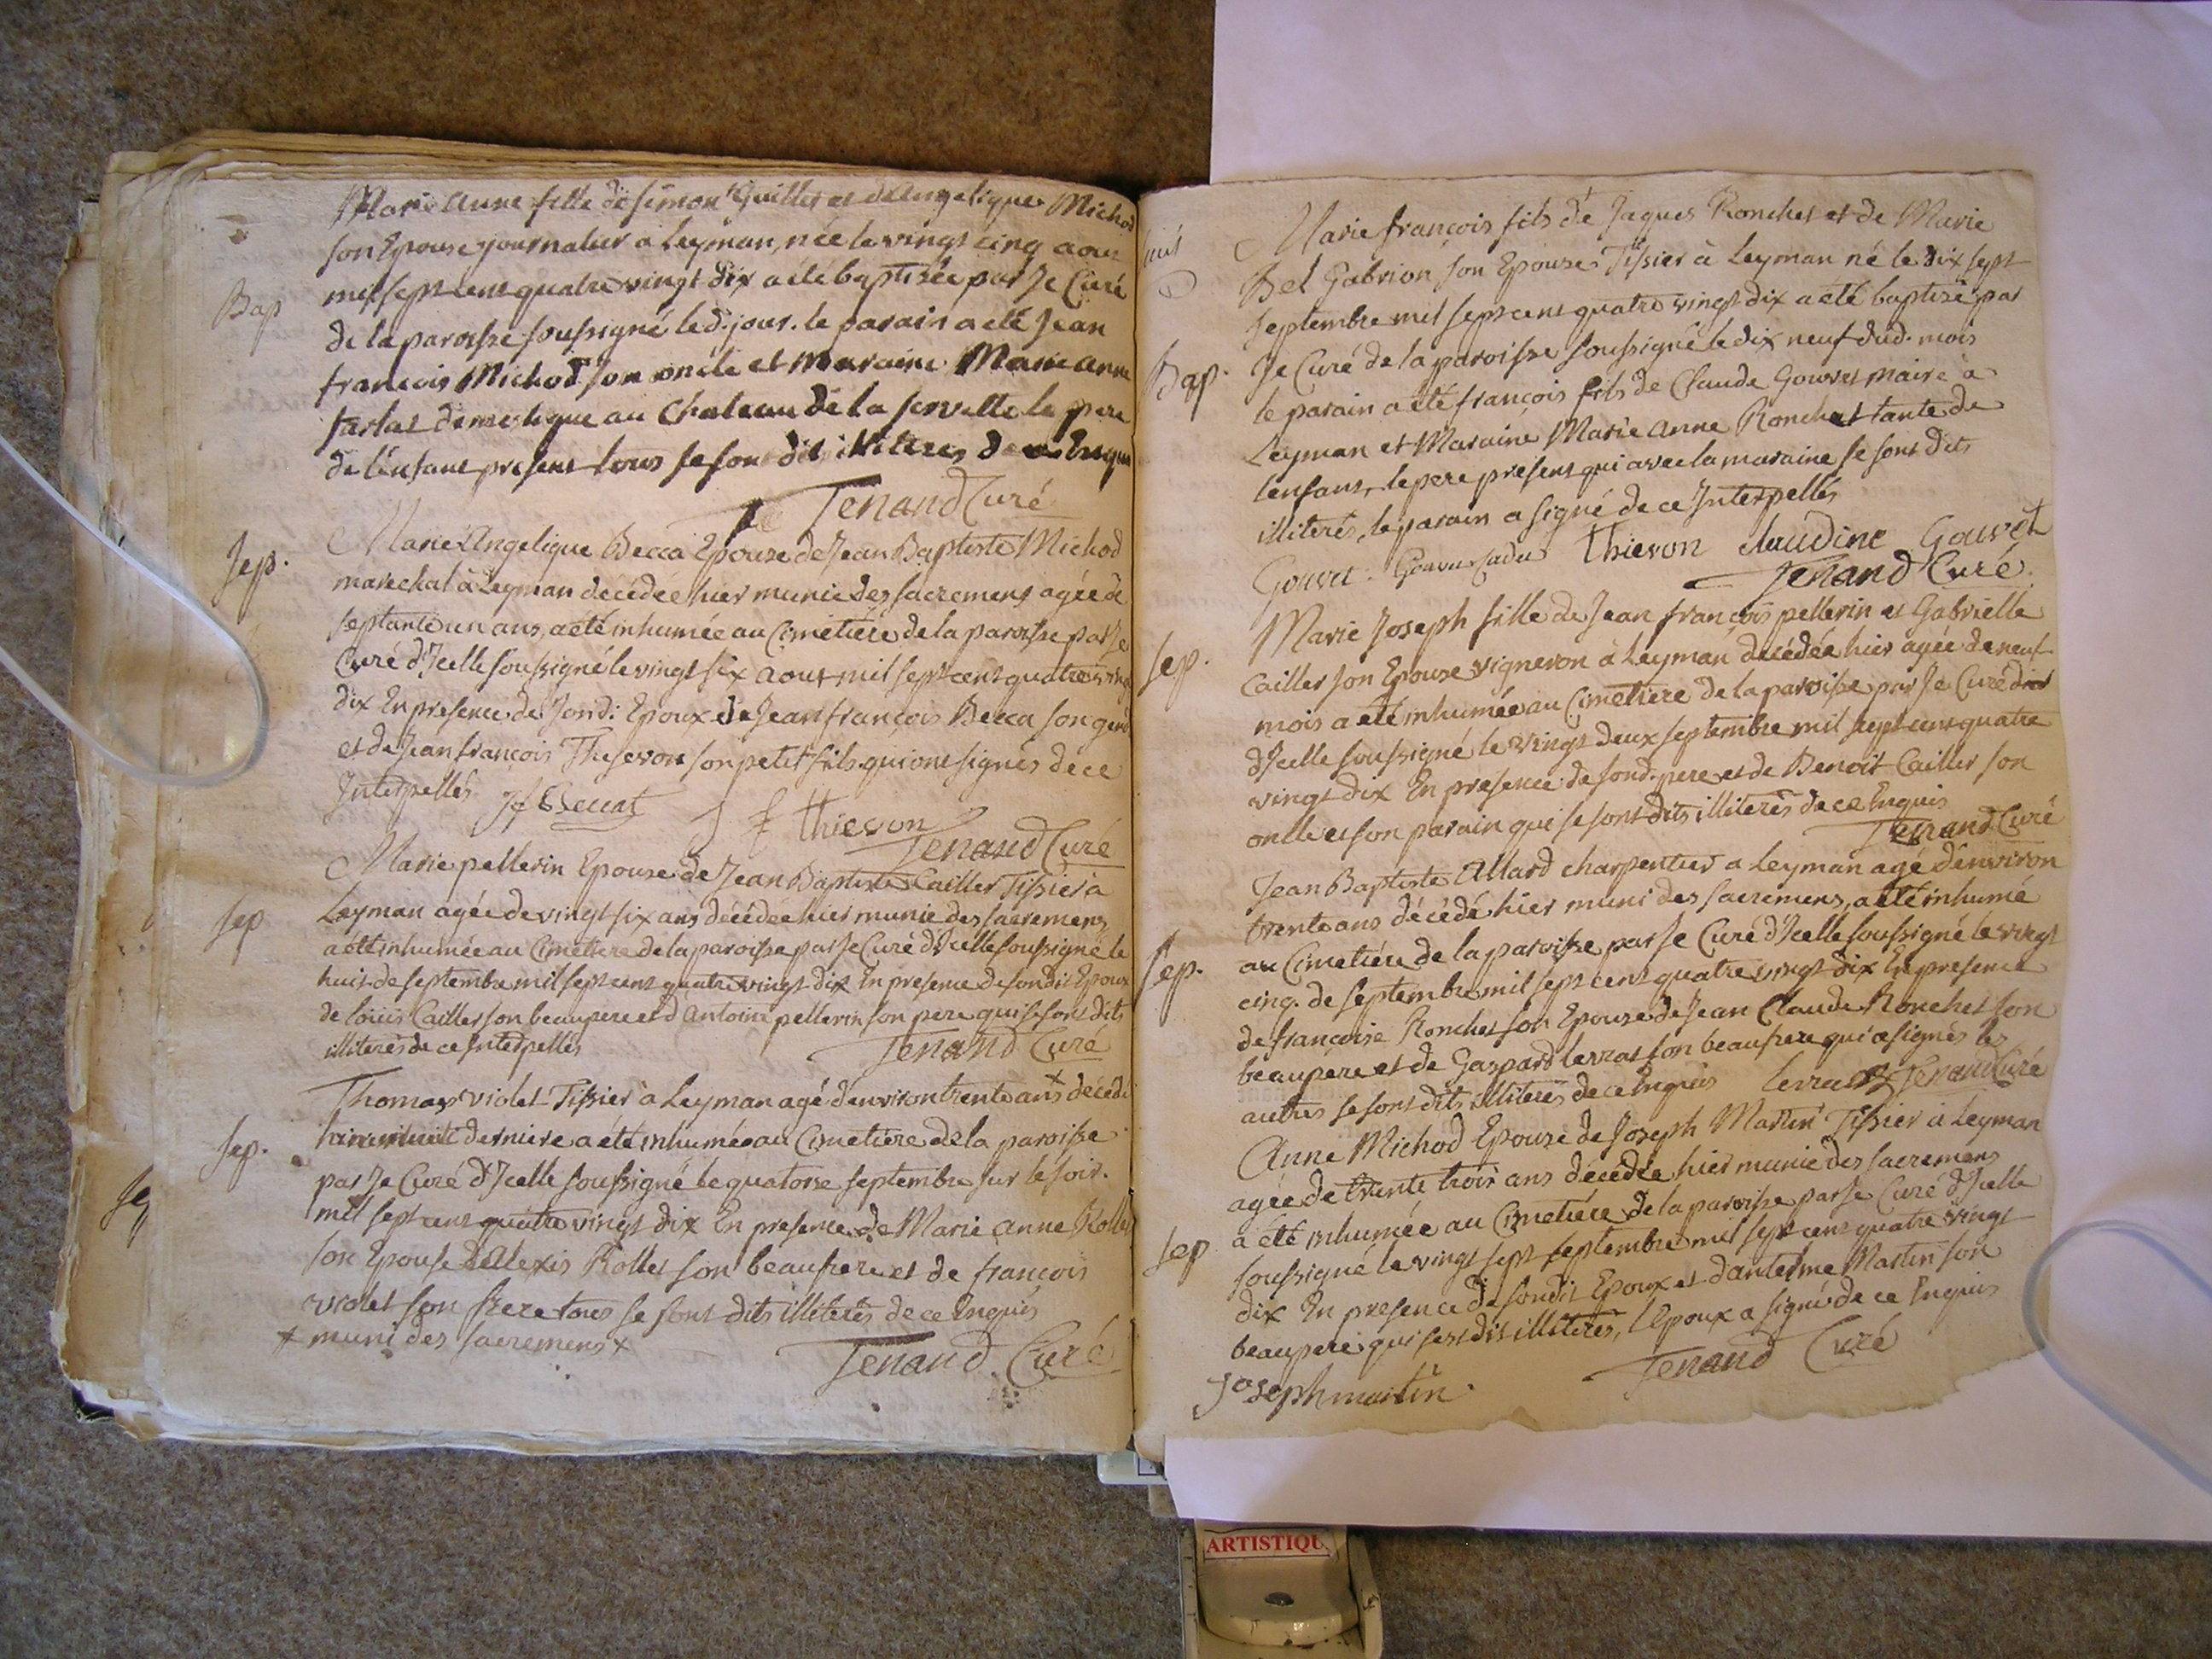 Marie Anne fille de Simon Guillet et d'Angelique Michod
son Epouse journalier a Leyman, née le vingt cinq aout
mil sept cent quatre vingt dix a été baptisée par Je Curé
Bap
de la paroisse soussigné led. jour. le parain a été Jean
francois Michod son oncle et maraine Marie Anne
domestique au Chateau de la servette le pere
de l'enfant present tous se sont dit illiteres de ce Enquis
Tenand Curé
Sep.
Marie Angelique Becca Epouse de Jean Baptiste Michod
marechal à Leyman décédée hier munie des sacremens agée de
septante un ans, a été inhumée au Cimetiere de la paroisse par Je
Curé d'Jcelle soussigné le vingt six aout mil sept cent quatre vingt
dix En presence de sondi. Epoux de Jean françois Becca son
et de Jean francois Thievon son petit fils qui ont signés de ce
Jnterpellés Jf Beccat J f thievon
Tenand Curé
Marie pellerin Epouse de Jean Baptiste Cailler Tissier à
Sep
Leyman agée de vingt six ans décédée hier munie des sacremens
a été inhumée au Cimetiere de la paroisse par Je Curé d'Jcelle soussigné le
huit de septembre mil sept cent quatre vingt dix En presence de sondit Epoux
de loüis Cailler son beaupere et d'Antoine pellerin son pere qui se sont dits
illiterés de ce Jnterpellés
Tenand Curé
Thomas violet Tissier à Leyman agé d'environ trente ans x décédé
Sep.
derniere a été inhumée au Cimetiere de la paroisse
par Je Curé d'Jcelle soussigné le quatorse septembre sur le soir.
Sep
mil sept cent quatre vingt dix En presence de Marie Anne Rollet
son Epouse d'Allexis Rollet son beaufrere et de francois
violet son frere tous se sont dits illiterés de ce Enquis
x muni des sacremens x
Tenand Curé
Marie françois fils de Jaques Ronchet et de Marie
Bel Gabrion son Epouse Tissier à Leyman né le dix sept
septembre mil sept cent quatre vingt dix a été baptisé par
Bap.
Je Curé de la paroisse soussigné le dix neuf dud. mois
le parain a été françois fils de Claude Gouvet maire à
Leyman et Maraine Marie Anne Ronchet tante de
lenfant, le pere present qui avec la maraine se sont dits
illiterés, le parain a signé de ce Jnterpellés
Gouvet. Gouvet Cadet Thievon claudine Gouvet
Tenand Curé.
Sep.
Marie Joseph fille de Jean françois pellerin et Gabrielle
Cailler son Epouse vigneron à Leyman décédée hier agée de neuf
mois a été inhumée au Cimetiere de la paroisse par Je Curé
d'Jcelle soussigné le vingt deux septembre mil sept cent quatre
vingt dix En presence de sond. pere et de Benoit Cailler son
oncle et son parain qui se sont dits illiterés de ce Enquis
Tenand Curé
Jean Baptiste Allard charpentier a Leyman agé d'environ
trente ans décédé hier muni des sacremens, a été inhumé
Sep.
au Cimetiére de la paroisse par Je Curé d'Jcelle soussigné le vingt
cinq. de septembre mil sept cent quatre vingt dix En presence
de françoise Ronchet son Epouse de Jean Claude Ronchet son
beaupére et de Gaspard levrat son beaufrere qui a signés les
autres se sont dits illiterés de ce Enquis levrat Tenand Curé
Anne Michod Epouse de Joseph Martin Tissier à Leyman
agée de trente trois ans décédée hier munie des sacremens
Sep
a été inhumée au Cimetiére de la paroisse par Je Curé d'Jcelle
soussigné le vingt sept septembre mil sept cent quatre vingt
dix En presence de sondit Epoux et d'antelme Martin son
beaupere qui sest dit illiteres, l'Epoux a signé de ce Enquis
Tenand Curé
Joseph martin.
ARTISTIQU